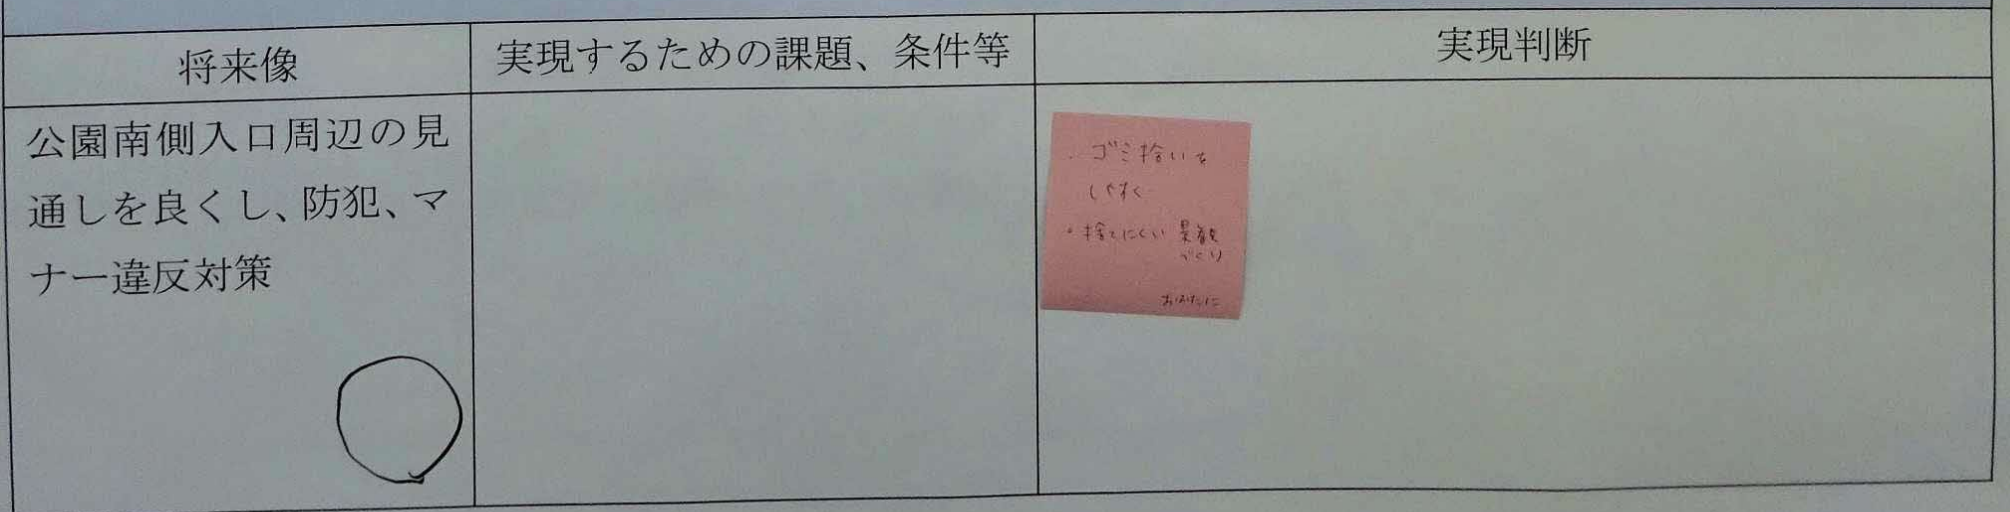 将来像
実現するための課題、条件等
実現判断
公園南側入口周辺の見
通しを良くし、防犯、マ
ナー違反対策
・ゴミ拾いを
しやすく
・捨てにくい 景観
づくり